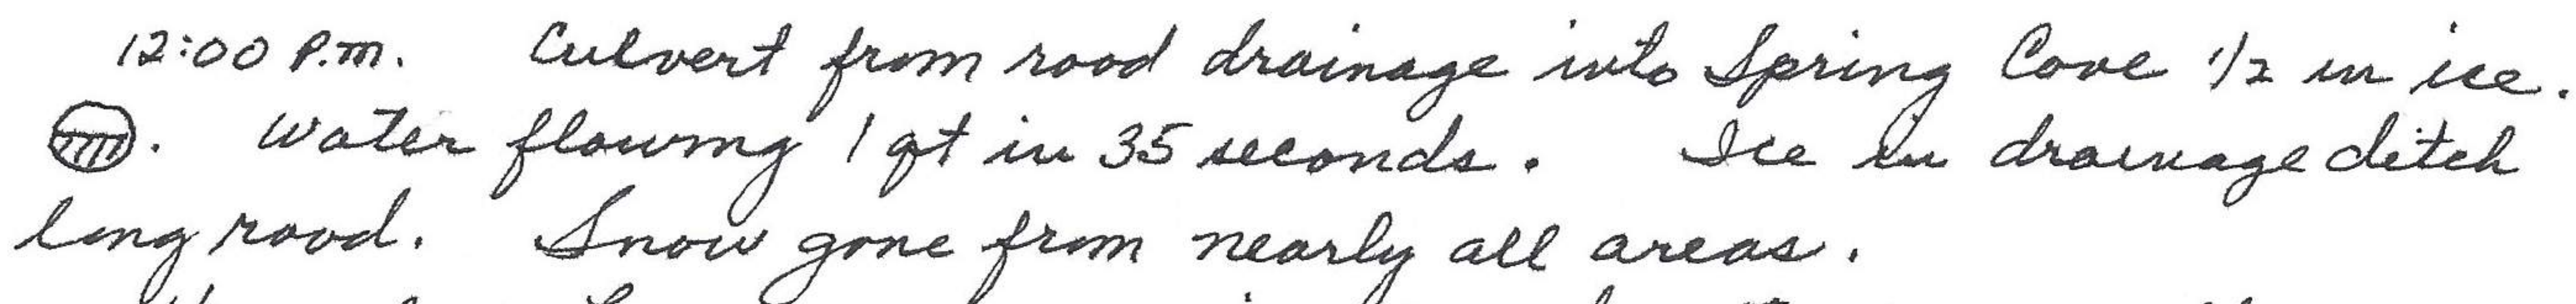 12:00 P.m. Culvert from road drainage into Spring Cove 1/2 in ice.
. Water flowing 1 qt in 35 seconds. Ice in drainage ditch
long road. Snow gone from nearly all areas.